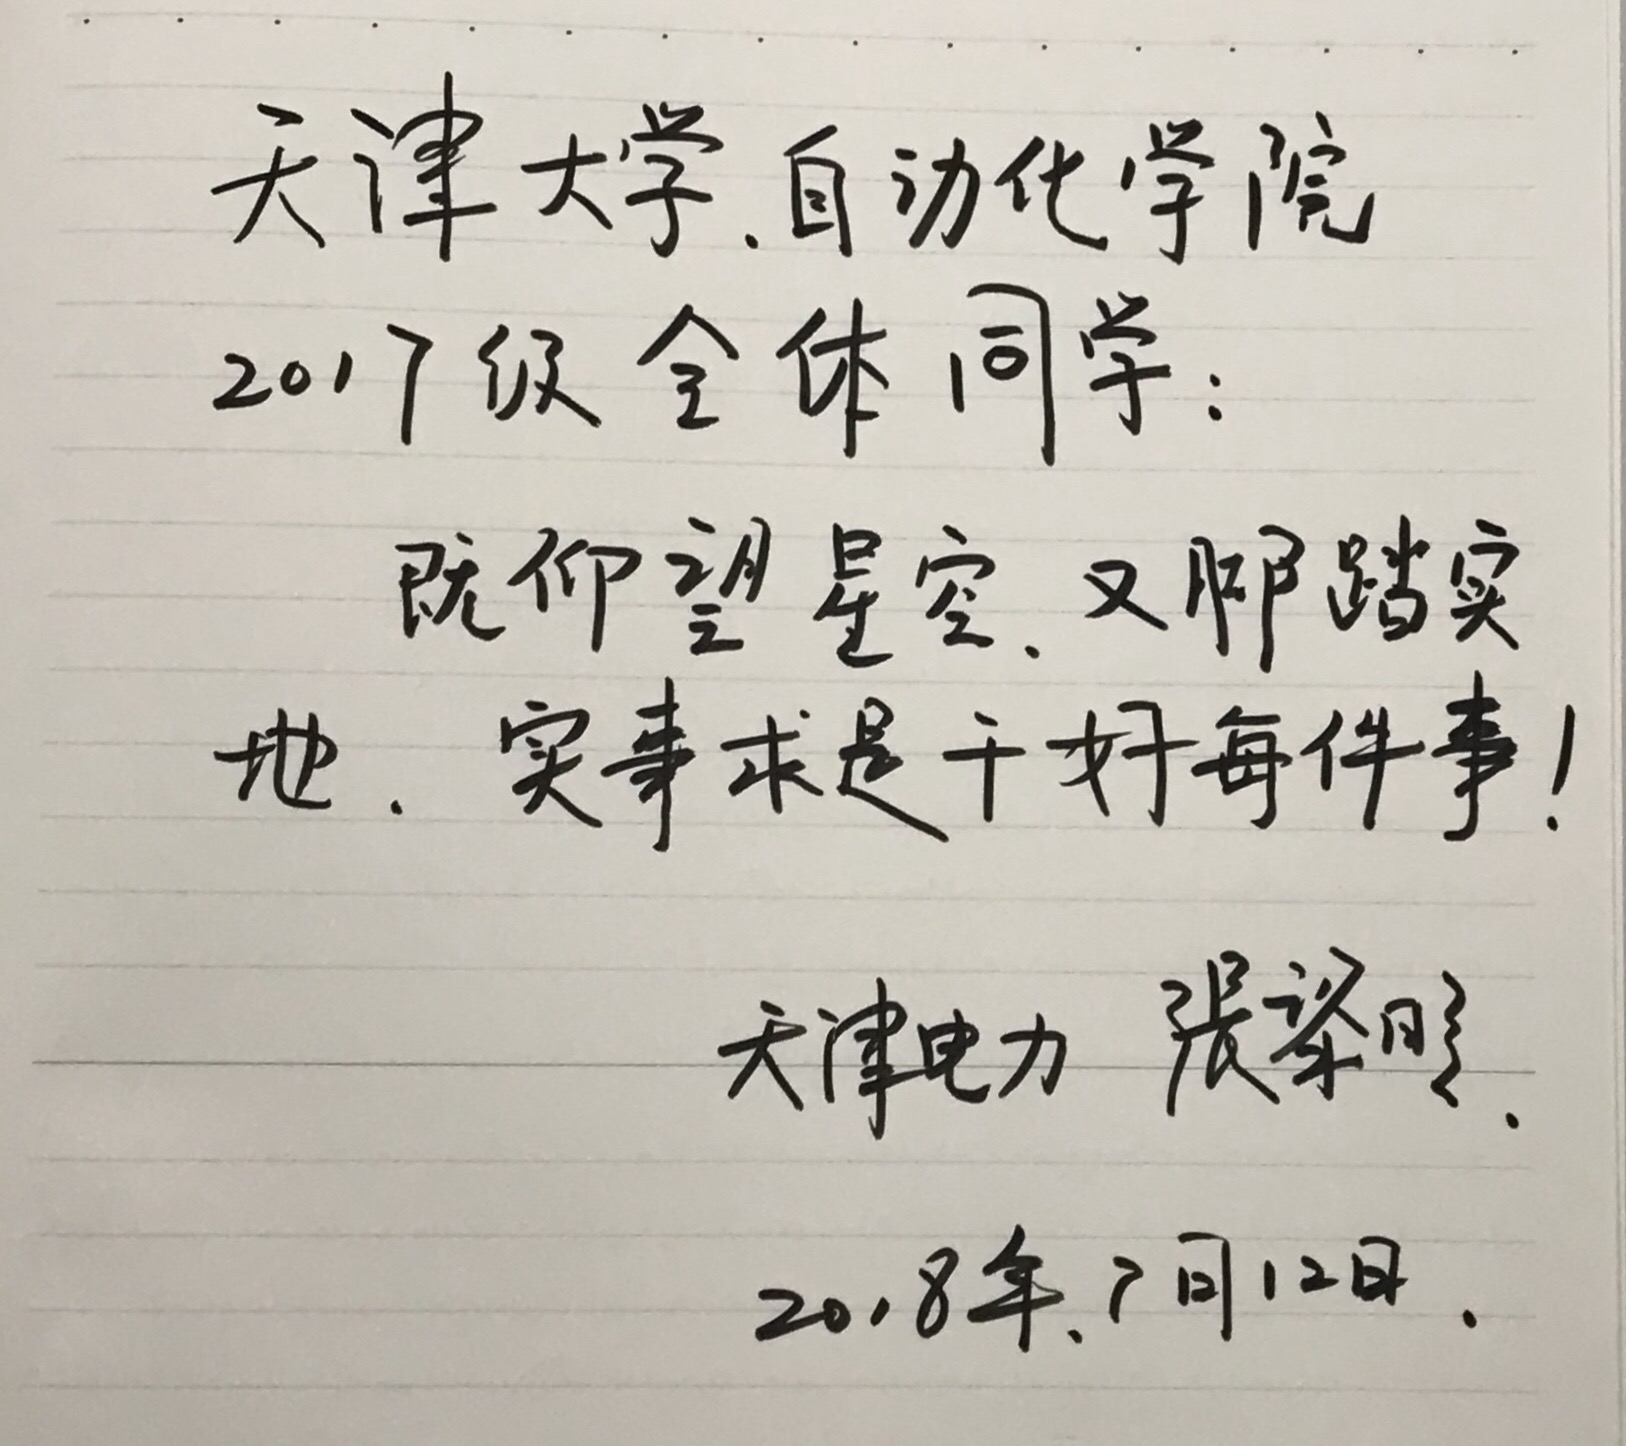 天津大学、自动化学院
2017级全体同学：
既仰望星空、又脚踏实
地、实事求是干好每件事！
天津电力 張黎明.
2018年、7月12日.